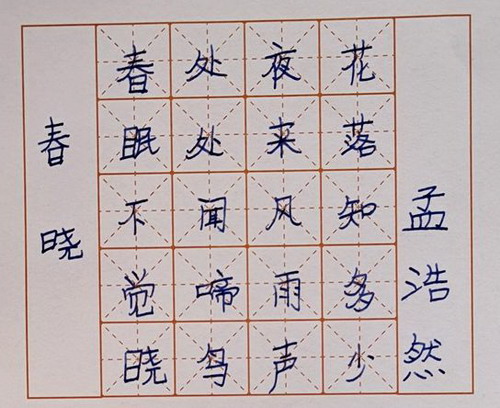 春晓
春眠不觉晓
处处闻啼鸟
夜来风雨声
花落知多少
孟浩然